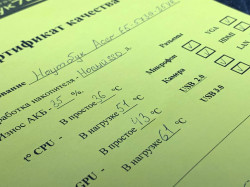 ртификат качества
Ноутбук Acer E5
работка накопителя - Разъемы
Износ АКБ - 35 %
t° CPU - В простое 36 °C
В нагрузке 51 °C
GPU - В простое 43 °C
В нагрузке 61 °C
Микрофон
Камера
USB 2.0
USB 3.0
VGA
HDMI